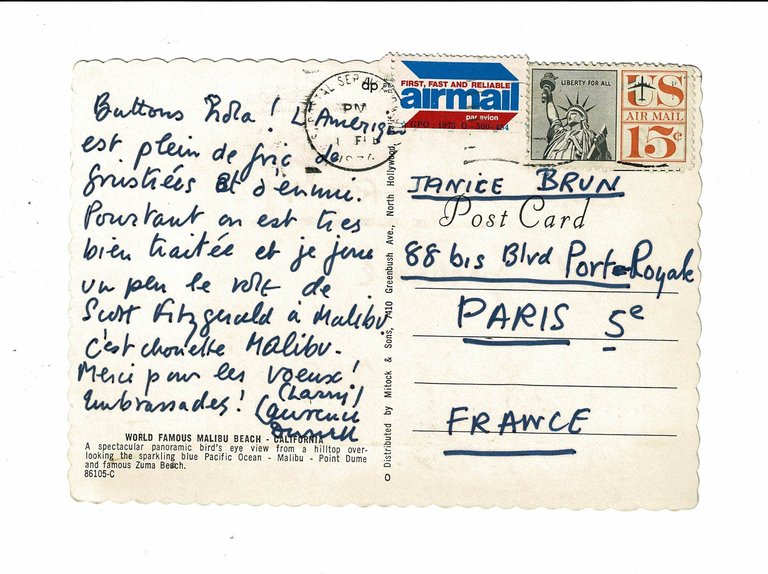 Buttons Zola! L'Amerique
est plein de fric de
frustrées et d'ennui.
Pourtant on est très
bien traitée et je joue
un peu le role de
Scott Fitzgerald à Malibu.
c'est chouette Malibu.
Merci pour les voeux!
Embrassades! (Larry)
Laurence
Durrell
WORLD FAMOUS MALIBU BEACH - CALIFORNIA
A spectacular panoramic bird's eye view from a hilltop over-
looking the sparkling blue Pacific Ocean - Malibu - Point Dume
and famous Zuma Beach.
86105-C
Distributed by Mitock & Sons, 7410 Greenbush Ave., North Hollywood,
SEP
PM
FEB
FIRST, FAST AND RELIABLE
airmail
par avion
GPO: 1973 O-500-484
LIBERTY FOR ALL
US
AIR MAIL
15¢
Post Card
JANICE BRUN
88 bis Blvd Port-Royale
PARIS 5e
FRANCE